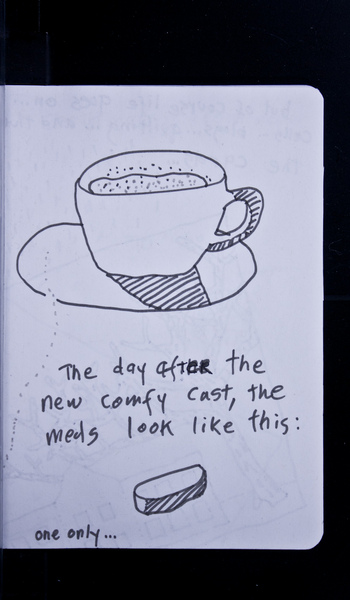 The day after the
new comfy cast, the
meds look like this:
one only...